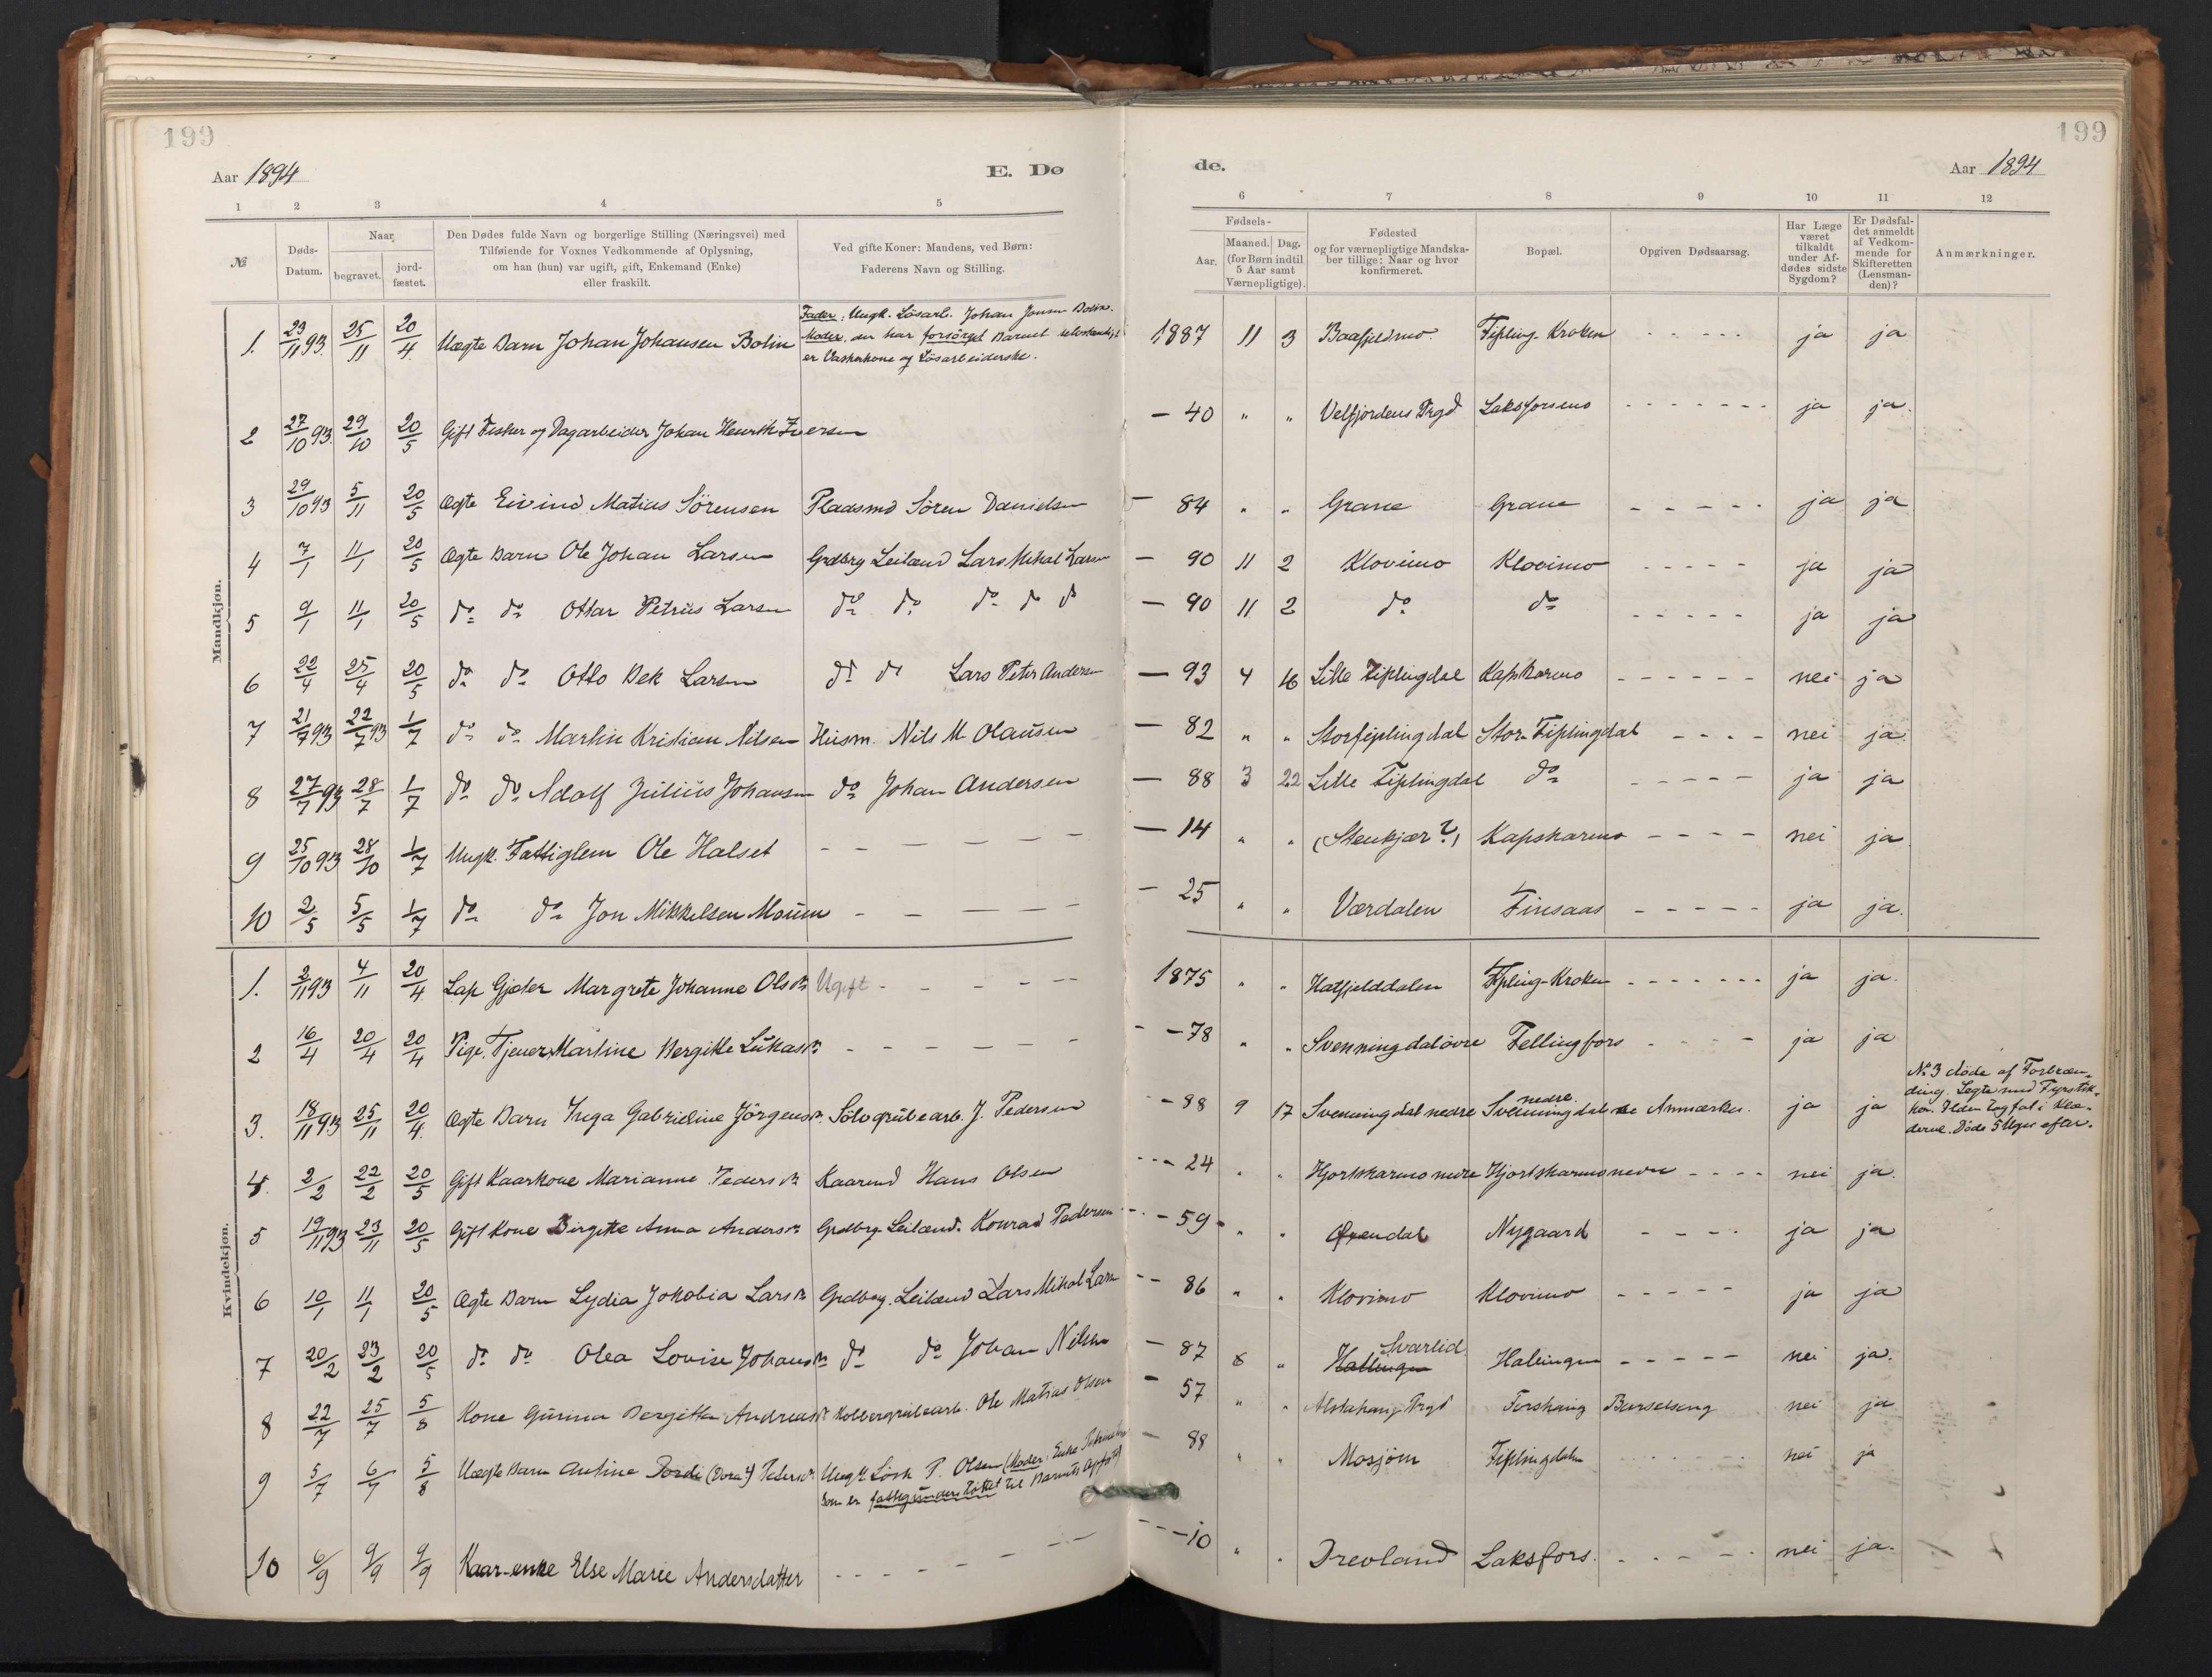 199
199
Aar 1894
E. Dø
de.
Aar 1894
1 2 3 4 5
6 7 8 9 10 11 12
№
Døds-
Datum.
Naar
begravet.
jord-
fæstet.
Den Dødes fulde Navn og borgerlige Stilling (Næringsvei) med
Tilføiende for Voxnes Vedkommende af Oplysning,
om han (hun) var ugift, gift, Enkemand (Enke)
eller fraskilt.
Ved gifte Koner: Mandens, ved Børn:
Faderens Navn og Stilling.
Fødsels-
Aar.
Maaned. Dag.
(for Børn indtil
5 Aar samt
Værnepligtige).
Fødested
og for værnepligtige Mandska-
ber tillige: Naar og hvor
konfirmeret.
Bopæl.
Opgiven Dødsaarsag.
Har Læge
været
tilkaldt
under Af-
dødes sidste
Sygdom?
Er Dødsfal-
det anmeldt
af Vedkom-
mende for
Skifteretten
(Lensman-
den)?
Anmærkninger.
Mandkjøn.
1. 23/11 93. 25/11 20/4. Uægte Barn Johan Johansen Bolin Fader: Ungk. Lösarb. Johan Jonsen Bolin.
Moder, der har forsörget Barnet selvstændigt
er Vaskerkone og Lösarbeiderske.
1887 11 3 Baafjeldmo. Fipling-Kroken - - - - - ja ja
2 27/10 93. 29/10 20/5 Gift Fisker og Dagarbeider Johan Henrik Iversen
- 40 " " Velfjordens Prgd Laksforsmo - - - - - - - ja ja.
3 29/10 93 5/11 20/5 Ægte Eivind Matias Sörensen Pladsmd Sören Danielsen
- 84 " " Grane Grane - - - - - ja ja
4 7/1 11/1 20/5 Ægte Barn Ole Johan Larsen Grdbrg Leilænd Lars Mikal Larsen
- 90 11 2 Klovimo Klovimo - - - - - ja ja
5 9/1 11/1 20/5 do do Ottar Petrus Larsen do do do do do
- 90 11 2 do do - - - - - ja ja
6 22/4 25/4 20/5 do do Otto Bek Larsen do do Lars Peter Andersen
- 93 4 16 Lille Fiplingdal Kapskarmo - - - - - - nei ja
7 21/7 93 22/7 93 1/7 do do Martin Kristian Nilsen Husm. Nils M. Olausen
- 82 " " Storfiplingdal Stor-Fiplingdal - - - - nei ja
8 27/7 93 28/7 1/7 do do Adolf Julius Johansen do Johan Andersen
- 88 3 22 Lille Fiplingdal do - - - - - ja ja
9 25/10 93 28/10 1/7 Ungk. Fattiglem Ole Halset - - - - - -
- 14 " " (Stenkjær?) Kapskarmo - - - - nei ja
10 2/5 5/5 1/7 do do Jon Mikkelsen Mouen - - - - -
- 25 " " Værdalen Finsaas - - - - - ja ja.
Kvindekjøn.
1. 2/11 93 4/11 20/4 Lap Gjæter Margrete Johanne Olsdr Ugift - - - - -
1875 " " Hatfjelddalen Fipling-Kroken - - - - - - - ja ja.
2 16/4 20/4 20/4 Pige. Tjener Martine Bergitte Lukasdr - - - - - -
- 78 " " Svenningdal övre Fellingfors - - - - ja ja
3. 18/11 93 25/11 20/4. Ægte Barn Inga Gabrieline Jörgensdr. Sölvgrubearb. J. Pedersen
- 88 9 17 Svenningdal nedre Svenningdal nedre Anmærkn. ja ja
No 3 døde af Forbræn-
ding. Legte med Fyrstik-
ker. Ilden tog fat i Klæ-
derne. Døde 5 Uger efter.
4. 2/2 22/2 20/5 Gift Kaarkone Marianne Pedersdr Kaarmd Hans Olsen
- 24 " " Hjortskarmo nedre Hjortskarmo nedre - - - - nei ja.
5 19/11 93 23/11 20/5 Gift Kone Birgitte Anna Andersdr Grdbrg. Leilænd. Konrad Pedersen
- 59 " " Nygaard - - - - ja ja
6 10/1 11/1 20/5 Ægte Barn Lydia Jakobia Larsdr Grdbrg. Leilænd Lars Mikal Larsen
- 86 " " Klovimo Klovimo - - - - - ja ja
7 20/2 23/2 20/5 do do Olea Lovise Johansdr do do Johan Nilsen
- 87 8 " Svarlid Hallingen Halingen - - - - - nei ja.
8 22/7 25/7 5/8 Kone Gurina Bergitta Andreasdr Kobbergrubearb. Ole Matias Olsen
- 57 " " Alstahaug Prgd Forshaug Barselseng nei ja
9 5/7 6/7 5/8 Uægte Barn Antine Dordi (Dora?) Pedersdr. Ungk. Lösk P. Olsen (Moder: Enke
som er fattigunderstöttet til Barnets Opfostr.)
- 88 " " Mosjøen Fiplingdalen - - - - nei ja
10 6/9 9/9 9/9 Kaar-enke Else Marie Andersdatter - - - - - -
- 10 " " Drevland Laksfors. - - - - - nei ja.